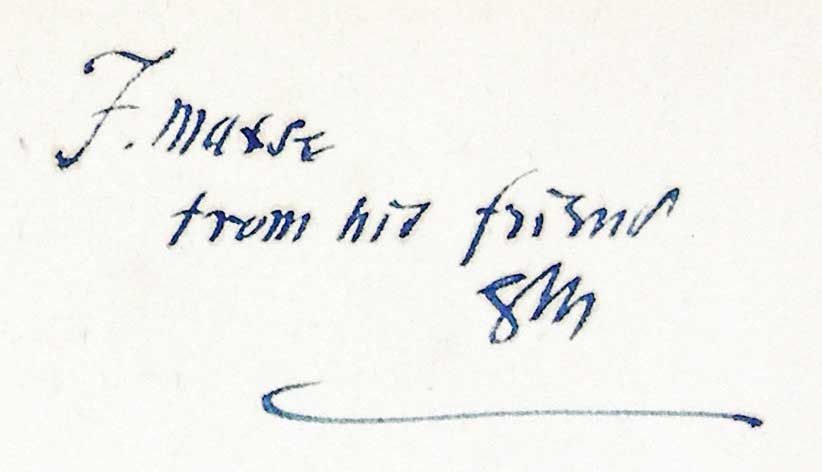 F. Maxse
from his friend
GM